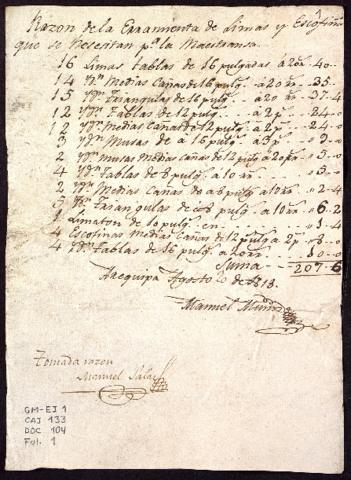 Razon de la Erramenta de Limas y Escofinas
que se Necesitan pª la Maestransa
16 Limas tablas de 16 pulgadas a 20 rr 40..
14 Ydn Medias Cañas de 16 pulg a 20 rr 35..
15 Ydn Triangulas de 16 pulg a 20 rr 37..4
12 Ydn Tablas de 12 pulg a 2p 24..0
12 Ydn Medias Cañas de 12 pulg a 2p 24..0
3 Ydn Musas de a 16 pulg a 3p 9..0
2 Ydn musas medias cañas de 12 pulg
4 Ydn tablas de 8 pulg a 10 rr
2 Ydn Medias Cañas de a 8 pulg a 10 rr 2..4
5 Ydn Triangulas de 8 pulg a 10 rr 6..2
1 Limaton de 10 pulg en 1..4
4 Escofinas Medias Cañas de 12 pulg a 2p 8..0
4 Ydn tablas de 16 pulg a 20 rr
Suma 207..6
Arequipa Agosto de 1813.
Manuel
Tomada razon
Manuel Salas
GM-EJ 1
CAJ 133
DOC 104
Fol. 1